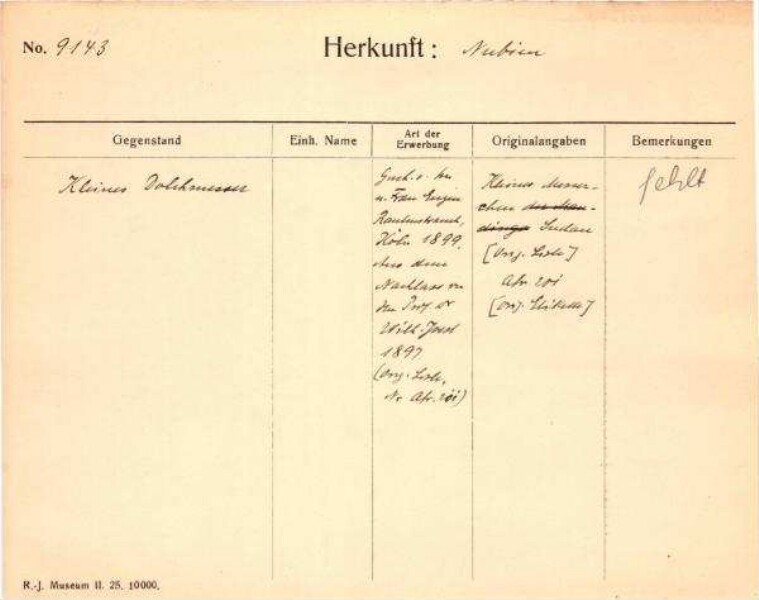 No. 9143 Herkunft: Nubien
Gegenstand Einh. Name Art der Erwerbung Originalangaben Bemerkungen
Kleines Dolchmesser
Gesch. v. Hn
u. Frau Eugen
Rautenstrauch,
Köln 1899.
Aus dem
Nachlass von
dem Prof. Dr
Wilh. Joest
1897
(Orig. Liste,
Nr. Afr.
Kleines Messer-
chen der Man-
dingo Sudan
[Orig. Liste]
Afr.
[Orig. Etikette]
fehlt
R.-J. Museum II. 25. 10000.